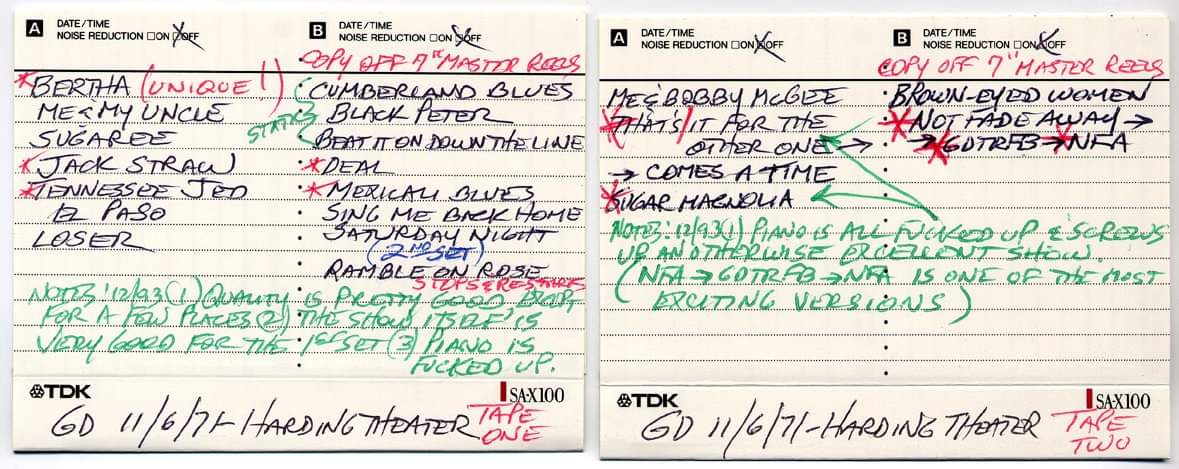 A DATE/TIME
NOISE REDUCTION □ON ☒OFF
*BERTHA (UNIQUE!)
ME & MY UNCLE
SUGAREE
*JACK STRAW
*TENNESSEE JED
EL PASO
LOSER
B DATE/TIME
NOISE REDUCTION □ON ☒OFF
COPY OFF 7" MASTER REELS
CUMBERLAND BLUES
STATICS
BLACK PETER
BEAT IT ON DOWN THE LINE
*DEAL
*MEXICALI BLUES
SING ME BACK HOME
SATURDAY NIGHT
(2ND SET)
RAMBLE ON ROSE
STOPS & RESTARTS
NOTES '12/93 (1) QUALITY IS PRETTY GOOD EXCEPT
FOR A FEW PLACES (2) THE SHOW ITSELF IS
VERY GOOD FOR THE 1ST SET (3) PIANO IS
FUCKED UP.
TDK SA-X100
GD 11/6/71 - HARDING THEATER TAPE
ONE
A DATE/TIME
NOISE REDUCTION □ON ☒OFF
ME & BOBBY McGEE
*THAT'S IT FOR THE
OTHER ONE →
→ COMES A TIME
*SUGAR MAGNOLIA
B DATE/TIME
NOISE REDUCTION □ON ☒OFF
COPY OFF 7" MASTER REELS
BROWN-EYED WOMEN
*NOT FADE AWAY →
→ *GDTRFB → *NFA
NOTES '12/93 (1) PIANO IS ALL FUCKED UP & SCREWS
UP AN OTHERWISE EXCELLENT SHOW.
(NFA → GDTRFB → NFA IS ONE OF THE MOST
EXCITING VERSIONS)
TDK SA-X100
GD 11/6/71 - HARDING THEATER TAPE
TWO